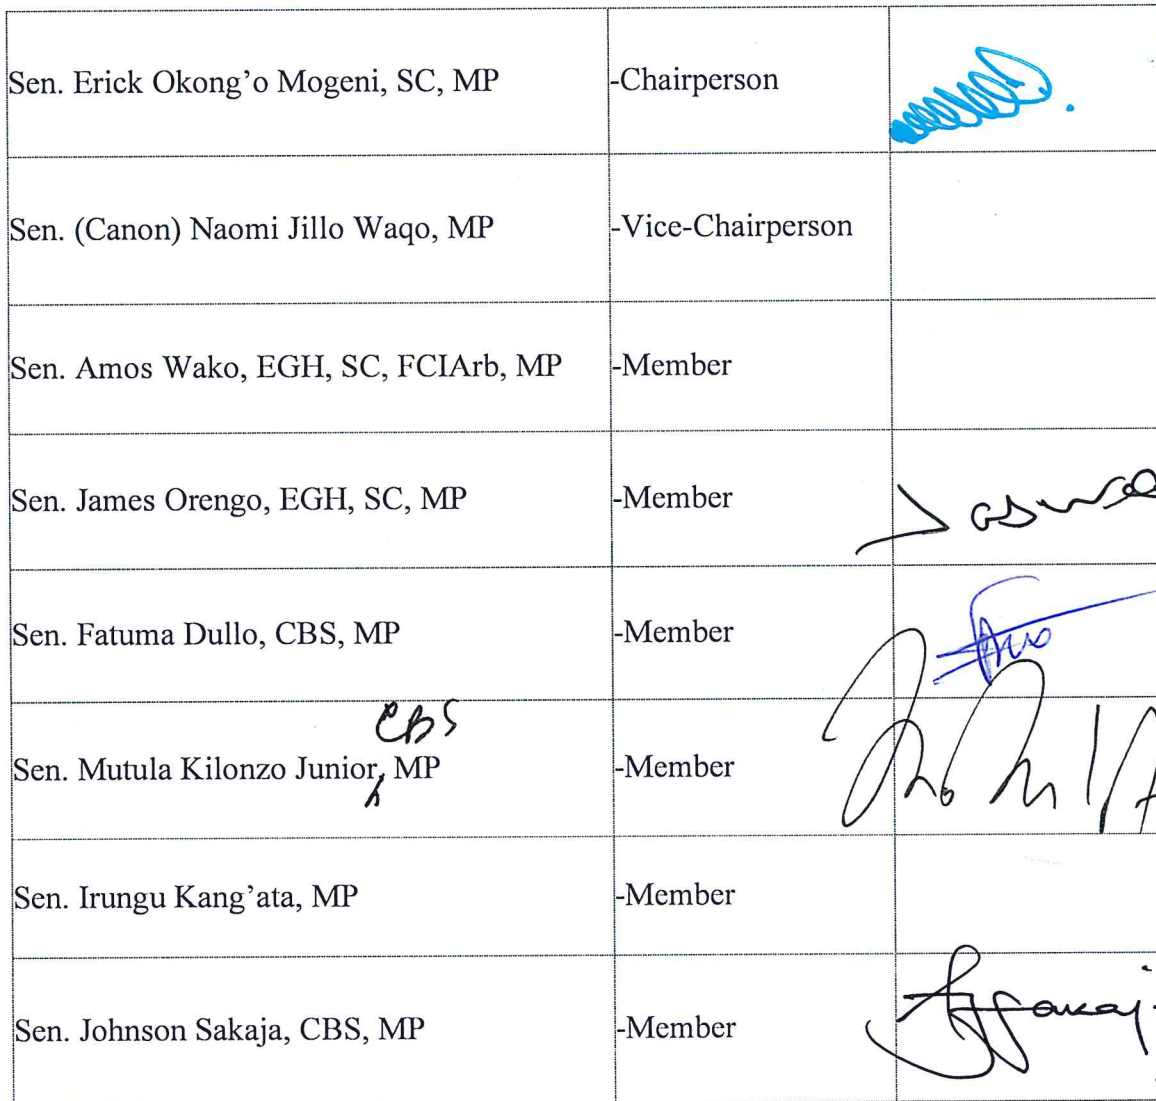 Sen. Erick Okong’o Mogeni, SC, MP -Chairperson
Sen. (Canon) Naomi Jillo Waqo, MP -Vice-Chairperson
Sen. Amos Wako, EGH, SC, FCIArb, MP -Member
Sen. James Orengo, EGH, SC, MP -Member
Sen. Fatuma Dullo, CBS, MP -Member
CBS
Sen. Mutula Kilonzo Junior, MP -Member
Sen. Irungu Kang’ata, MP -Member
Sen. Johnson Sakaja, CBS, MP -Member